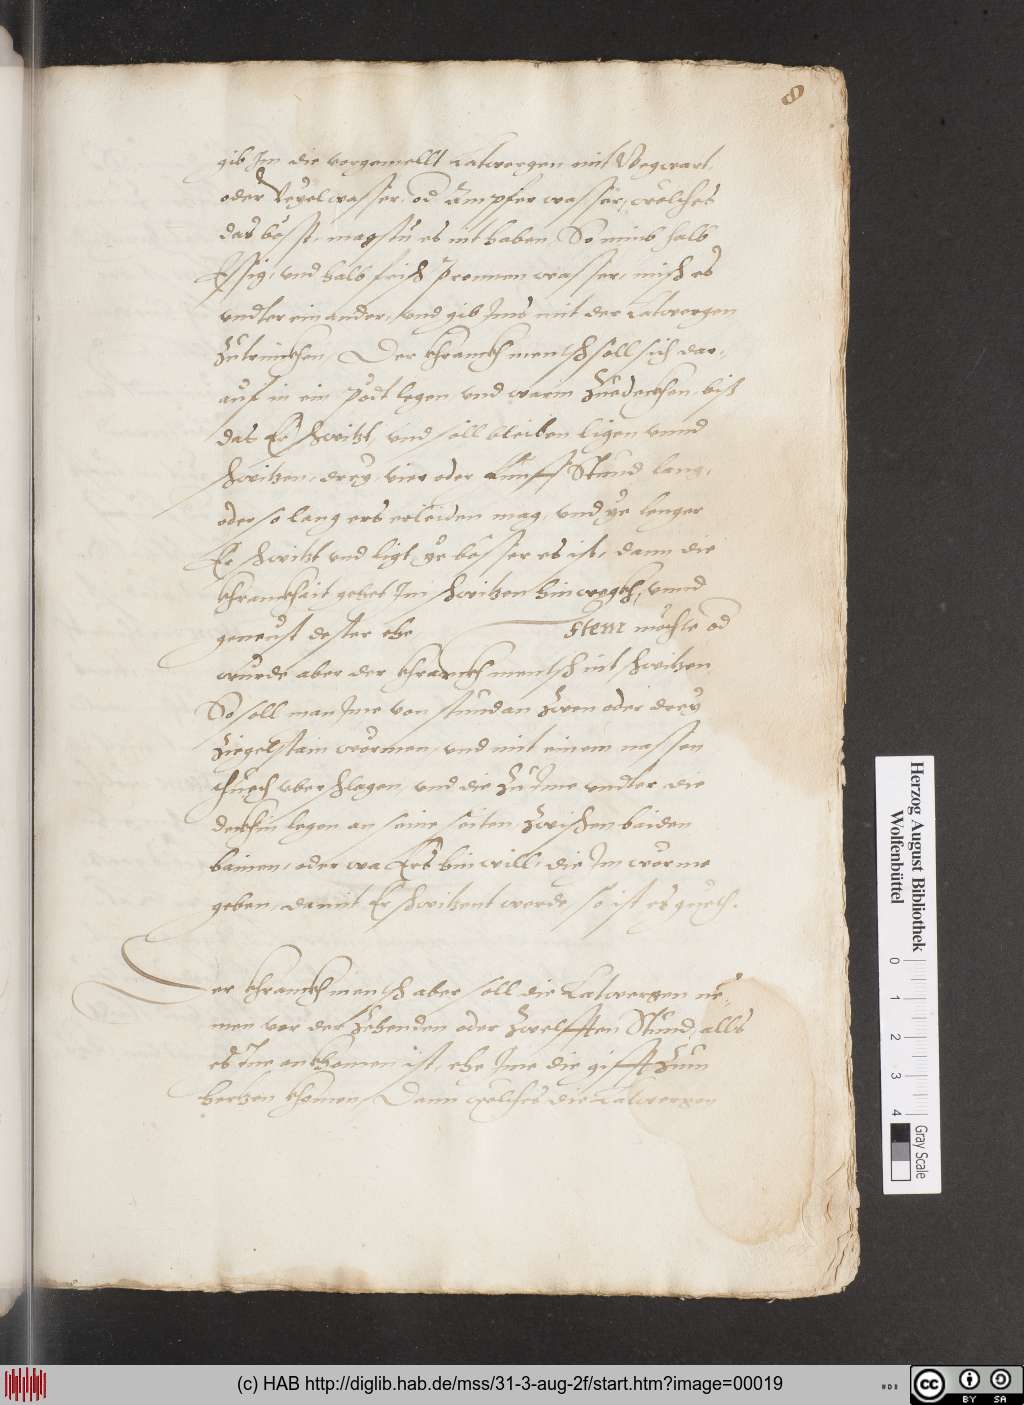 8
gib Im die vorgemellt Latwergen mit Wegwart
oder Veyelwasser, od Ampfer wasser, welches
das best, magstu es nit haben, So nimb halb
Essig, und halb frisch Pronnen wasser, misch es
undter einander, und gib Ims mit der Latwergen
zutrinckhen, Der khranckh mensch soll sich dar,,
auf in ein Pödt legen, und warm zuedeckhen, biß
das Er schwitzt, und soll bleiben ligen unnd
schwitzen, drey, vier oder fünff Stund lang,
oder so lang ers erleiden mag, und ye lenger
Er schwitzt und ligt, ye besser es ist, dann die
khranckhait gehet Im schwitzen hinwegkh, unnd
geneust dester ehe Item möchte od
wurde aber der khranckh mensch nit schwitzen
So soll man Ime von stundan zwen oder drey
Ziegelstain wörmen, und mit einem nassen
thuech uberschlagen, und die zu Ime undter die
deckhin legen an seine seiten, zwischen baiden
bainen, oder wa Ers hin will, die Im wörme
geben, damit Er schwitzent werde, so ist es gueth.
Der khranckh mensch aber soll die Latwergen ne,,
men vor der Zehenden oder zwelfften Stund, alls
es Ine ankhomen ist, ehe Ime die gifft zum
hertzen khomen, Dann welches die Latwergen
Herzog August Bibliothek
Wolfenbüttel
0 1 2 3 4
Gray Scale
(c) HAB http://diglib.hab.de/mss/31-3-aug-2f/start.htm?image=00019
cc BY SA